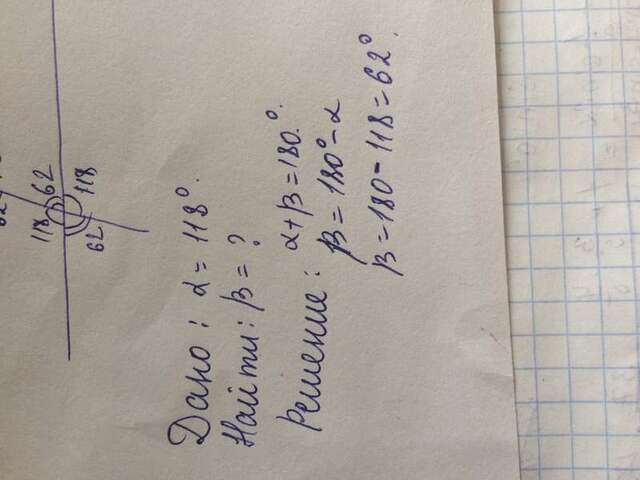 62
118 62
62 118
Дано: α = 118°.
Найти: β = ?
Решение: α + β = 180.°
β = 180° - α
β = 180 - 118 = 62°.